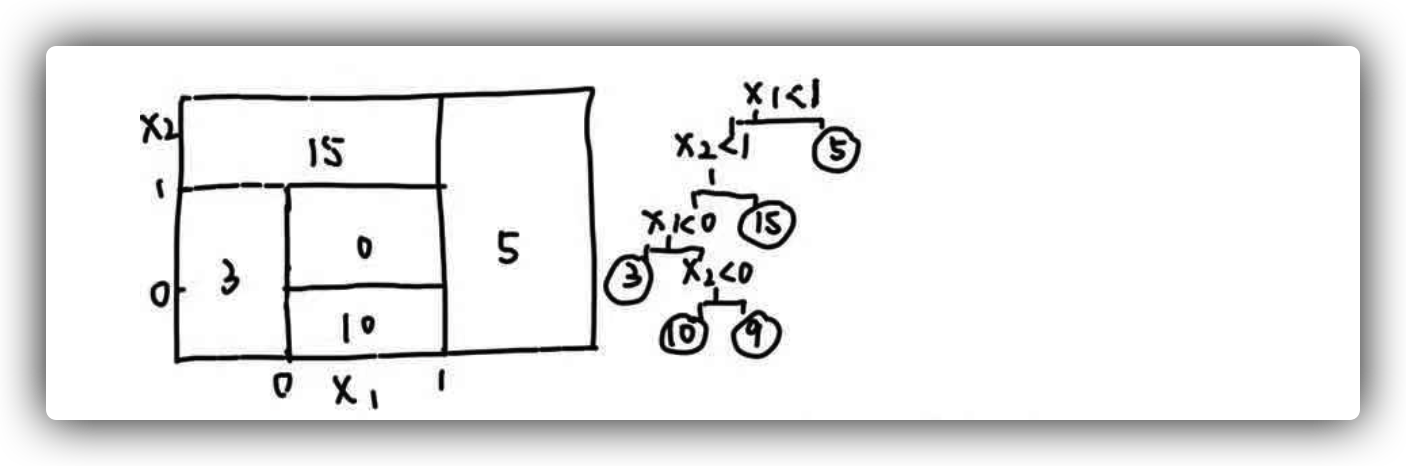 X2
15
1
3
0
5
0
10
0
X1
1
X1<1
X2<1
5
X1<0
15
3
X2<0
10
9